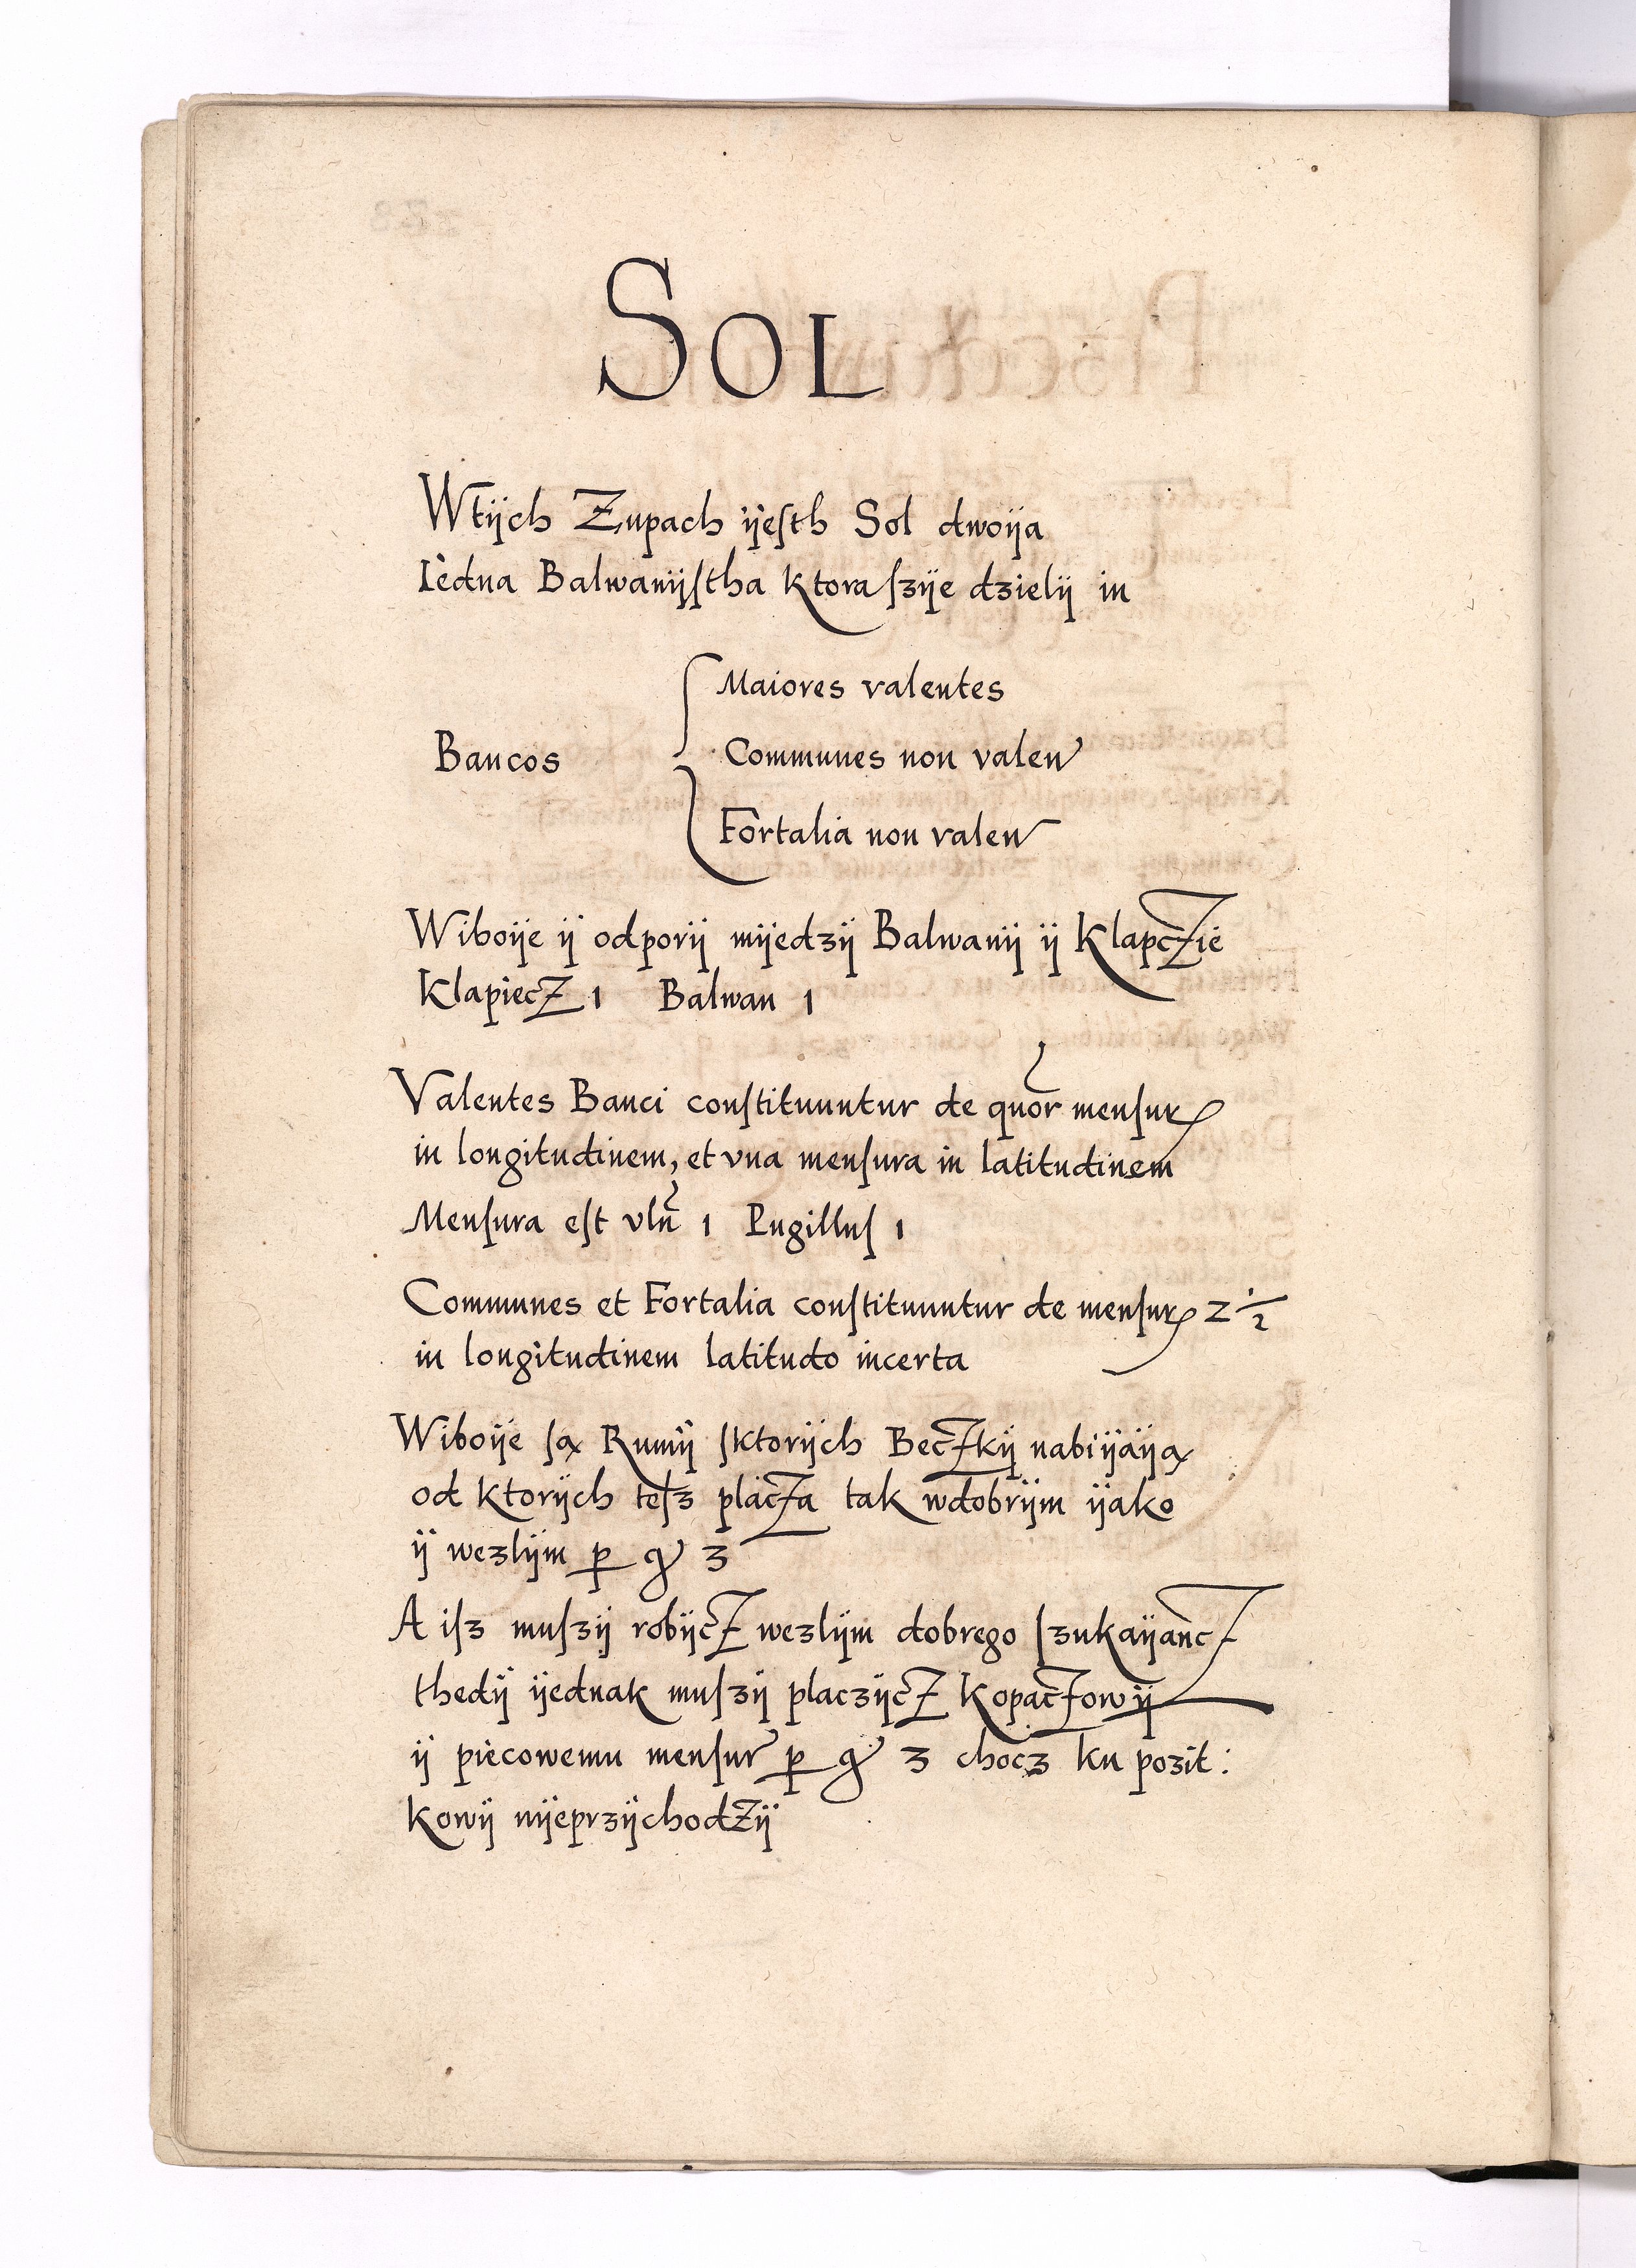 SOL
Wtÿch Zupach ÿeſth Sol dwoÿa
Iedna Balwanÿſtha ktora ſzÿe dzielÿ in
Maiores valentes
Bancos
Communes non valen
Fortalia non valen
Wiboÿe ÿ odporÿ mÿedzÿ Balwanÿ ÿ KlapcZie
KlapiecZ 1 Balwan 1
Valentes Banci conſtituuntur de quor menſur
in longitudinem, et vna menſura in latitudinem
Menſura eſt vln 1 Pugilluſ 1
Communes et Fortalia conſtituuntur de menſur 2 1/2
in longitudinem latitudo incerta
Wiboÿe ſą Rumÿ ſktorÿch BecZkÿ nabiÿaÿą
od ktorÿch teſz placZa tak wdobrÿm ÿako
ÿ wezlÿm p gͬ 3
A iſz muſzÿ robÿcZ wezlÿm dobrego ſzukaÿancZ
thedÿ ÿednak muſzÿ placzÿcZ KopacZowÿ
ÿ piecowemu menſur p gͬ 3 chocz ku pozit:
kowÿ nÿeprzÿchodZÿ